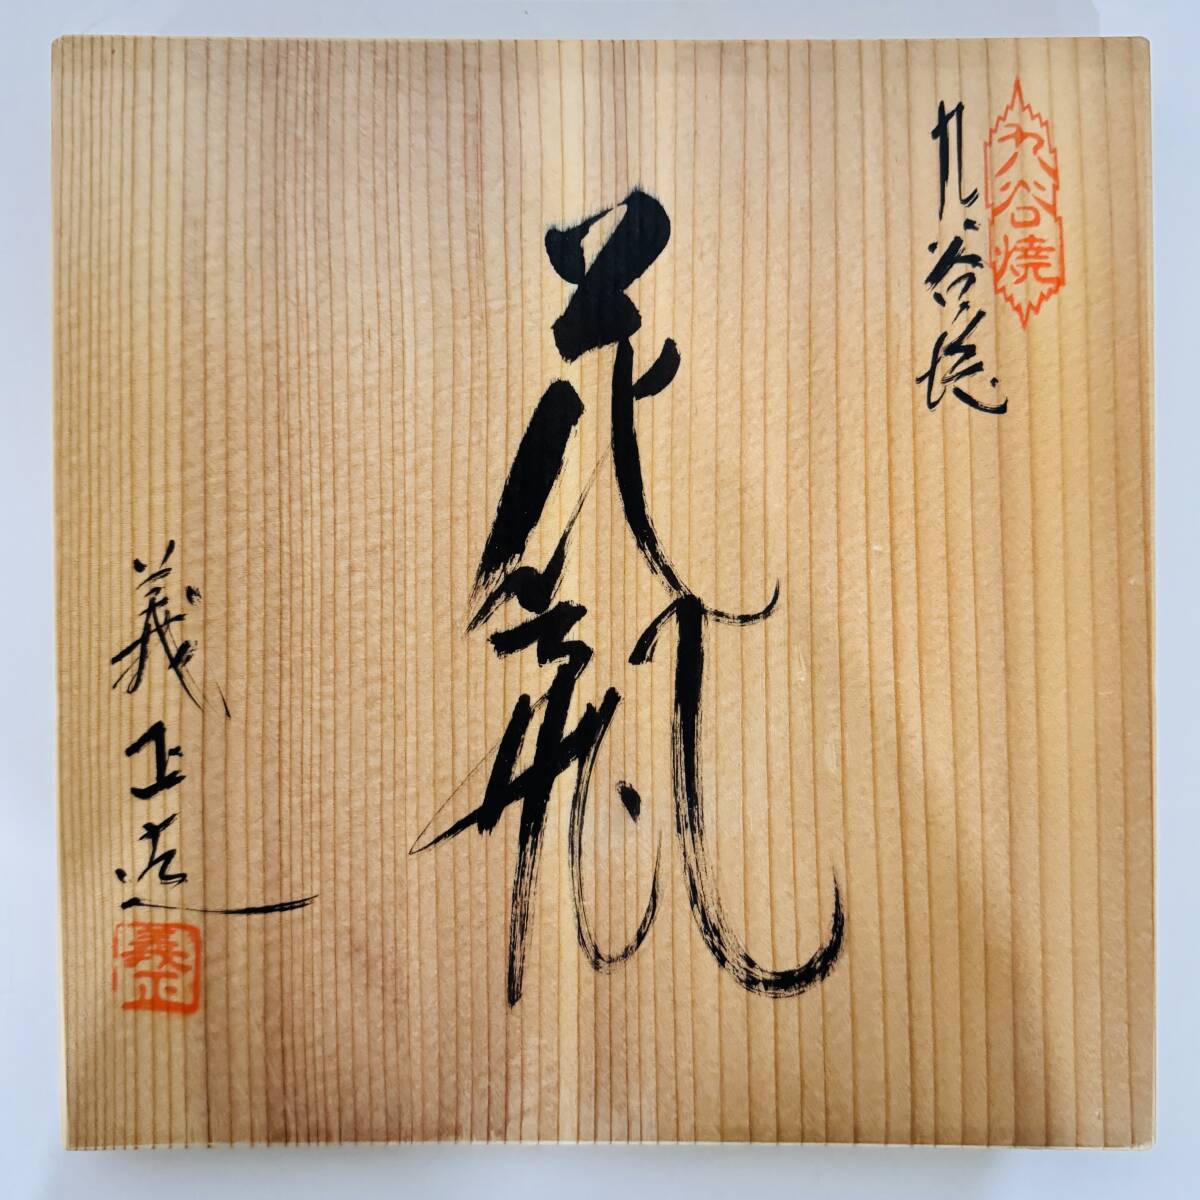 九谷焼
九谷焼
花瓶
義正造
義正